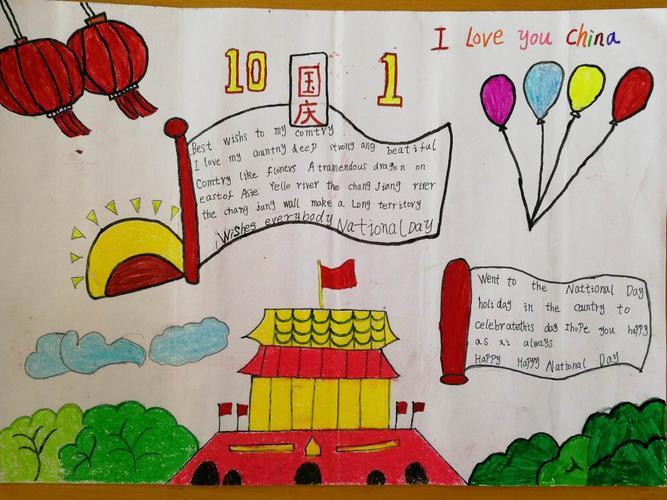 I Love you China
10 国庆 1
Best wishes to my comtry
I love my country deep strong ang beatiful
Comtry like flowers A tramendous dragon on
eastof Asie Yello river the chang Jiang river
the chang jang wall make a Long territory
Wishes everybody National Day
Went to the Nattional Day
holiday in the country to
celebratethis day Ihope you happy
as xi always
Happy Happy National Day